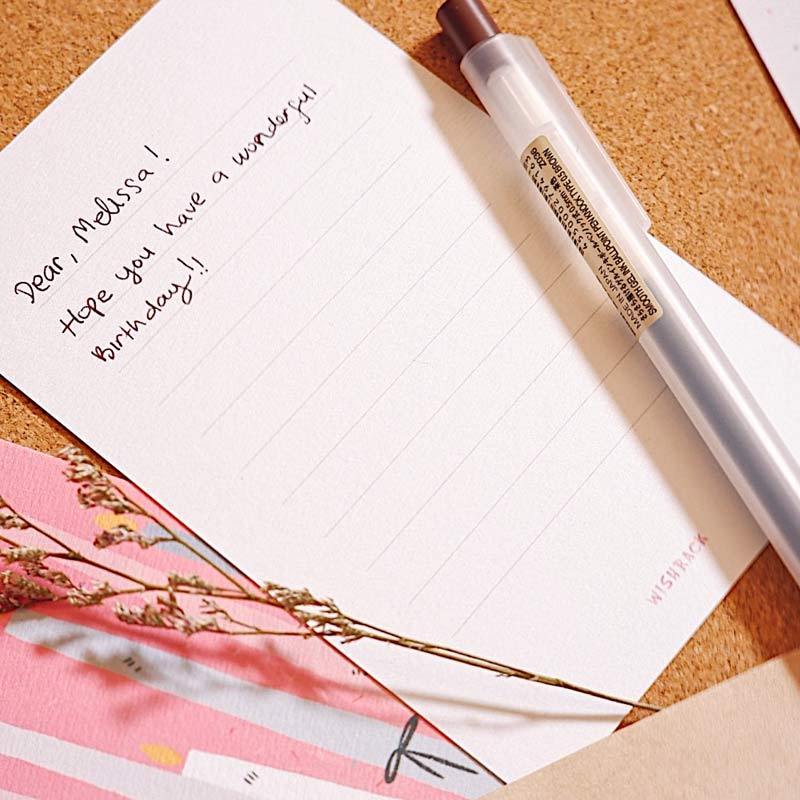 Dear, Melissa!
Hope you have a wonderful
Birthday!!
WISHRACK
MADE IN JAPAN
SMOOTH GEL INK BALLPOINT PEN KNOCK TYPE 0.5 BROWN